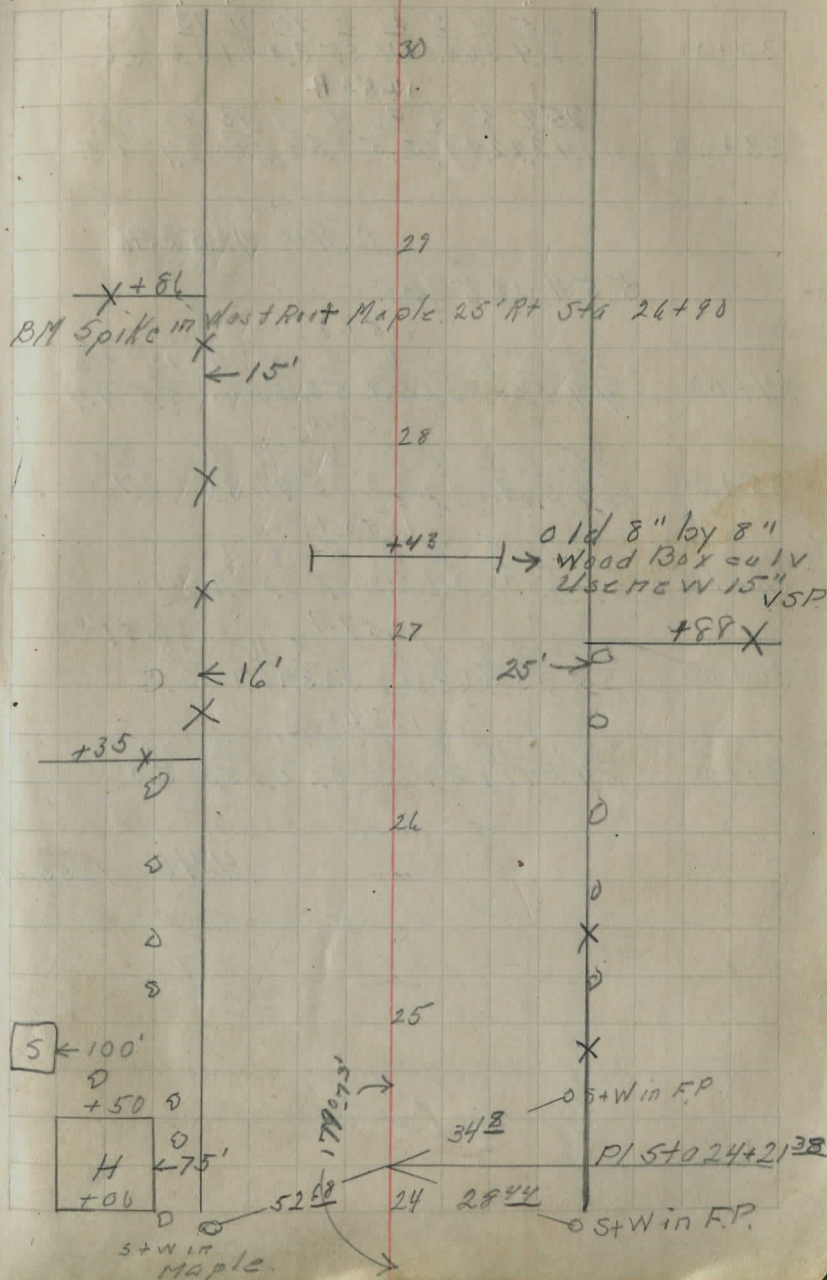 30
29
+86
BM Spike in West Root Maple 25' Rt Sta 26+90
15'
28
Old 8" by 8"
+43
Wood Box Culv.
Use new 15"
VSP.
27
+88
25'
16'
+35
26
25
S
100'
+50
S+W in F.P.
34 8
H
75'
PI Sta 24+21 38
+06
52 68
24
28 44
S+W in F.P.
S+W in
Maple.